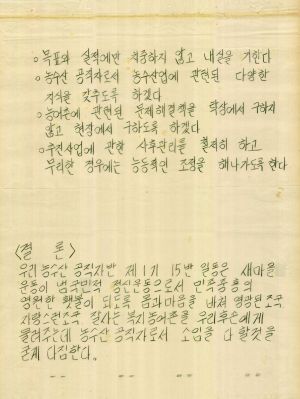 ○ 목표와 실적에만 치중하지 않고 내실을 기한다
○ 농수산 공직자로서 농수산업에 관련된 다양한
지식을 갖추도록 하겠다
○ 농어촌에 관련된 문제해결책을 탁상에서 구하지
않고 현장에서 구하도록 하겠다
○ 추진사업에 관한 사후관리를 철저히 하고
무리할 경우에는 능동적인 조정을 해나가도록 한다
〈결 론〉
우리 농수산 공직자반 제17기 15반 일동은 새마을
운동이 범국민적 정신운동으로서 민족중흥의
영원한 횃불이 되도록 몸과 마음을 바쳐 영광된 조국
자랑스런 조국 잘사는 복지농어촌을 우리 후손에게
물려주는데 농수산 공직자로서 소임을 다할것을
굳게 다짐한다.